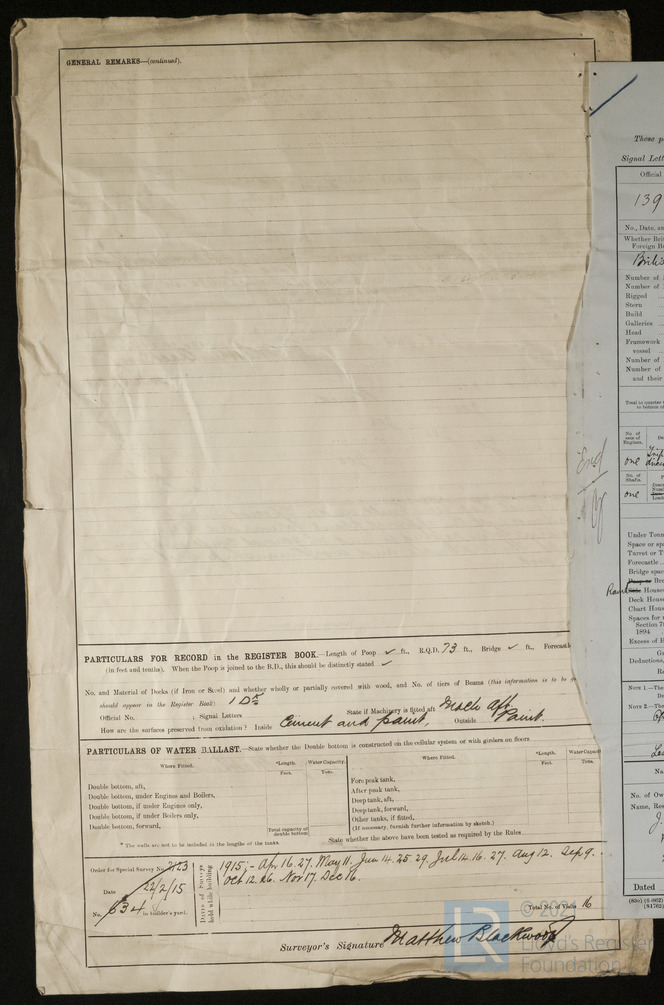 GENERAL REMARKS—(continued).
PARTICULARS FOR RECORD in the REGISTER BOOK.—Length of Poop ✓ ft., R.Q.D. 73 ft., Bridge ✓ ft., Forecastle
(in feet and tenths). When the Poop is joined to the B.D., this should be distinctly stated ✓
No. and Material of Decks (if Iron or Steel) and whether wholly or partially covered with wood, and No. of tiers of Beams (this information is to be
should appear in the Register Book) 1 Dk State if Machinery is fitted aft Mach. Aft.
Official No. ; Signal Letters
How are the surfaces preserved from oxidation? Inside Cement and paint, Outside Paint.
PARTICULARS OF WATER BALLAST.—State whether the Double bottom is constructed on the cellular system or with girders on floors
Where Fitted. *Length. Water Capacity. Where Fitted. *Length. Water Capacity
Feet. Tons. Feet. Tons.
Double bottom, aft,
Double bottom, under Engines and Boilers,
Double bottom, if under Engines only,
Double bottom, if under Boilers only,
Double bottom, forward,
Total capacity of double bottom
Fore peak tank,
After peak tank,
Deep tank, aft,
Deep tank, forward,
Other tanks, if fitted,
(If necessary, furnish further information by sketch.)
* The wells are not to be included in the lengths of the tanks.
State whether the above have been tested as required by the Rules
Order for Special Survey No. 2123
Date 22/2/15
No. 634 in builder's yard.
Dates of Surveys held while building
1915;- Apr 16. 27. May 11. Jun 14. 25. 29. Jul 14. 16. 27. Aug 12. Sep 9.
Oct 12. 26. Nov 17. Dec 16.
Total No. of Visits 16
Surveyor's Signature Matthew Blackwood
Lloyd's Register
Foundation
End
These p
Signal Lett
Official
139
No., Date, an
Whether Brit
Foreign B
Britis
Number of
Number of
Rigged
Stern
Build
Galleries
Head
Framework
vessel
Number of
Number of
and their
Total to quarter
to bottom of
No. of sets of Engines.
one
No. of Shafts.
one
Under Tonn
Space or sp
Turret or T
Forecastle
Bridge spac
House
Deck Hous
Chart Hous
Spaces for
Section 7
1894
Excess of H
Deductions,
NOTE 1.—The
NOTE 2.—The
No. of Ow
Name, Res
Dated